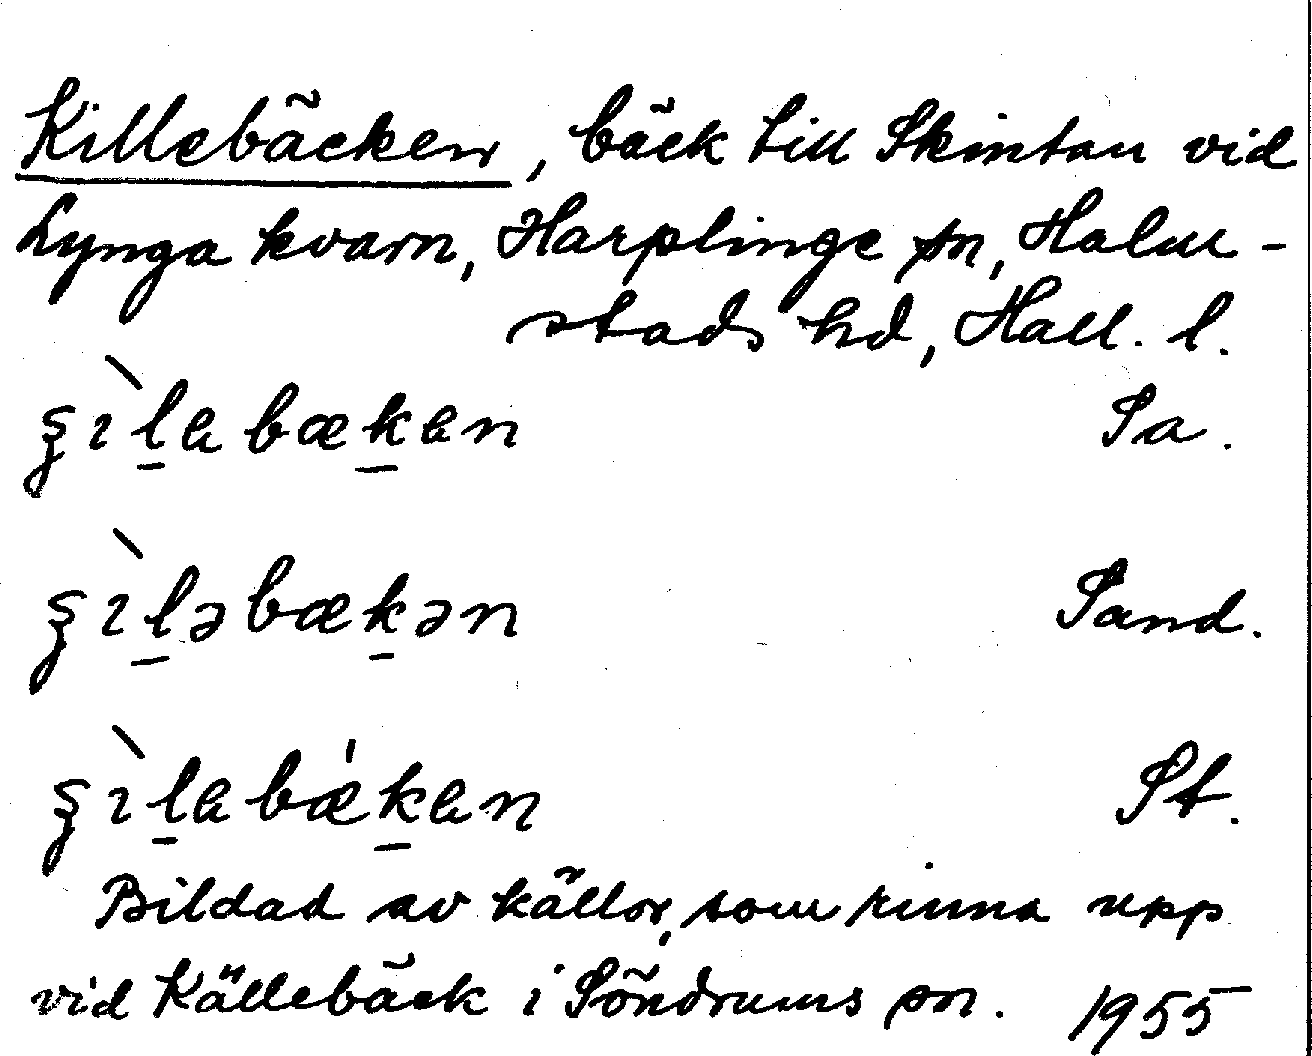 Killebäcken, bäck till Skintan vid
Lynga kvarn, Harplinge sn, Halm-
stads hd, Hall. l.
Sa.
Sand.
St.
Bildad av källor, som rinna upp
vid Källebäck i Söndrums sn. 1955